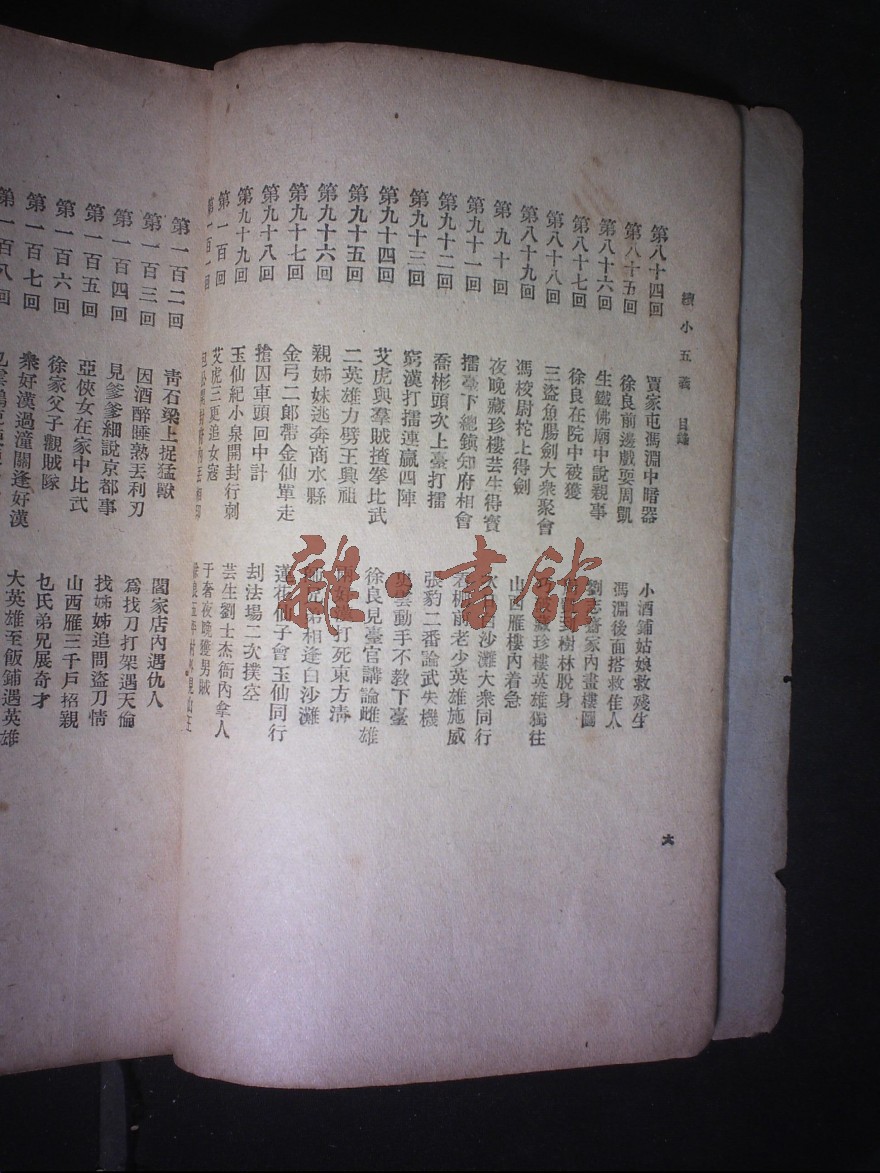 續小五義 目錄
第八十四回 賈家屯馮淵中暗器 小酒鋪姑娘救殘生
第八十五回 徐良前邊戲耍周凱 馮淵後面搭救佳人
第八十六回 生鐵佛廟中說親事 劉志齋家內畫樓圖
第八十七回 徐良在院中被獲 樹林脫身
第八十八回 三盜魚腸劍大衆聚會 藏珍樓英雄獨往
第八十九回 馮校尉柁上得劍 山西雁樓內着急
第九十回 夜晚藏珍樓芸生得寶 白沙灘大衆同行
第九十一回 擂臺下總鎮知府相會 看棚前老少英雄施威
第九十二回 喬彬頭次上臺打擂 張豹二番論武失機
第九十三回 窮漢打擂連贏四陣 動手不教下臺
第九十四回 艾虎與羣賊揸拳比武 徐良見臺官講論雌雄
第九十五回 二英雄力劈王興祖 打死東方淸
第九十六回 親姊妹逃奔商水縣 弟相逢白沙灘
第九十七回 金弓二郎帶金仙單走 蓮花仙子會玉仙同行
第九十八回 搶囚車頭回中計 刦法場二次撲空
第九十九回 玉仙紀小泉開封行刺 芸生劉士杰衙內拿人
第一百回 艾虎三更追女寇 于奢夜晚獲男賊
第一百一回
六
第一百二回 靑石梁上捉猛獸 閻家店內遇仇人
第一百三回 因酒醉睡熟丟利刃 爲找刀打架遇天倫
第一百四回 見爹爹細說京都事 找姊姊追問盜刀情
第一百五回 亞俠女在家中比武 山西雁三千戶招親
第一百六回 徐家父子觀賊隊 乜氏弟兄展奇才
第一百七回 衆好漢過潼關逢好漢 大英雄至飯鋪遇英雄
第一百八回
雜·書館